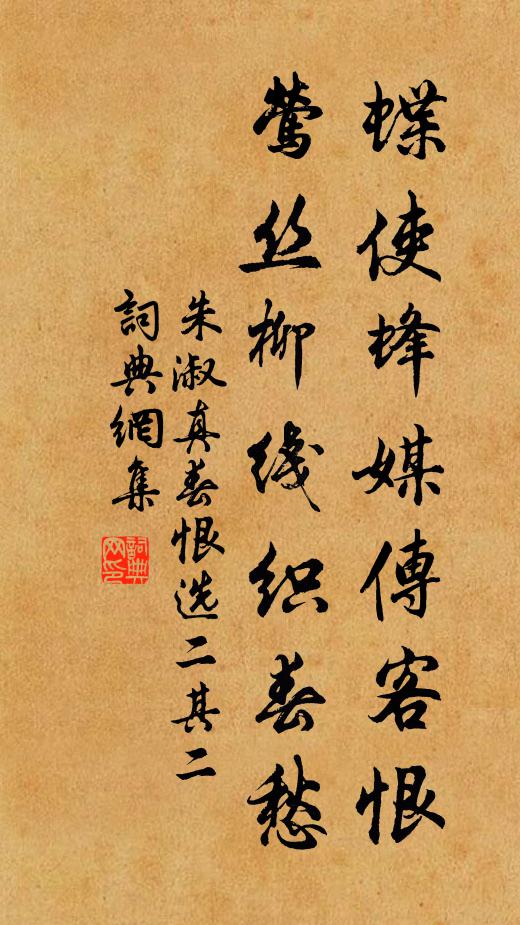 蝶使蜂媒傳客恨
莺丝柳线织春愁
朱淑真春恨选二其二
詞典網集
詞典
网印